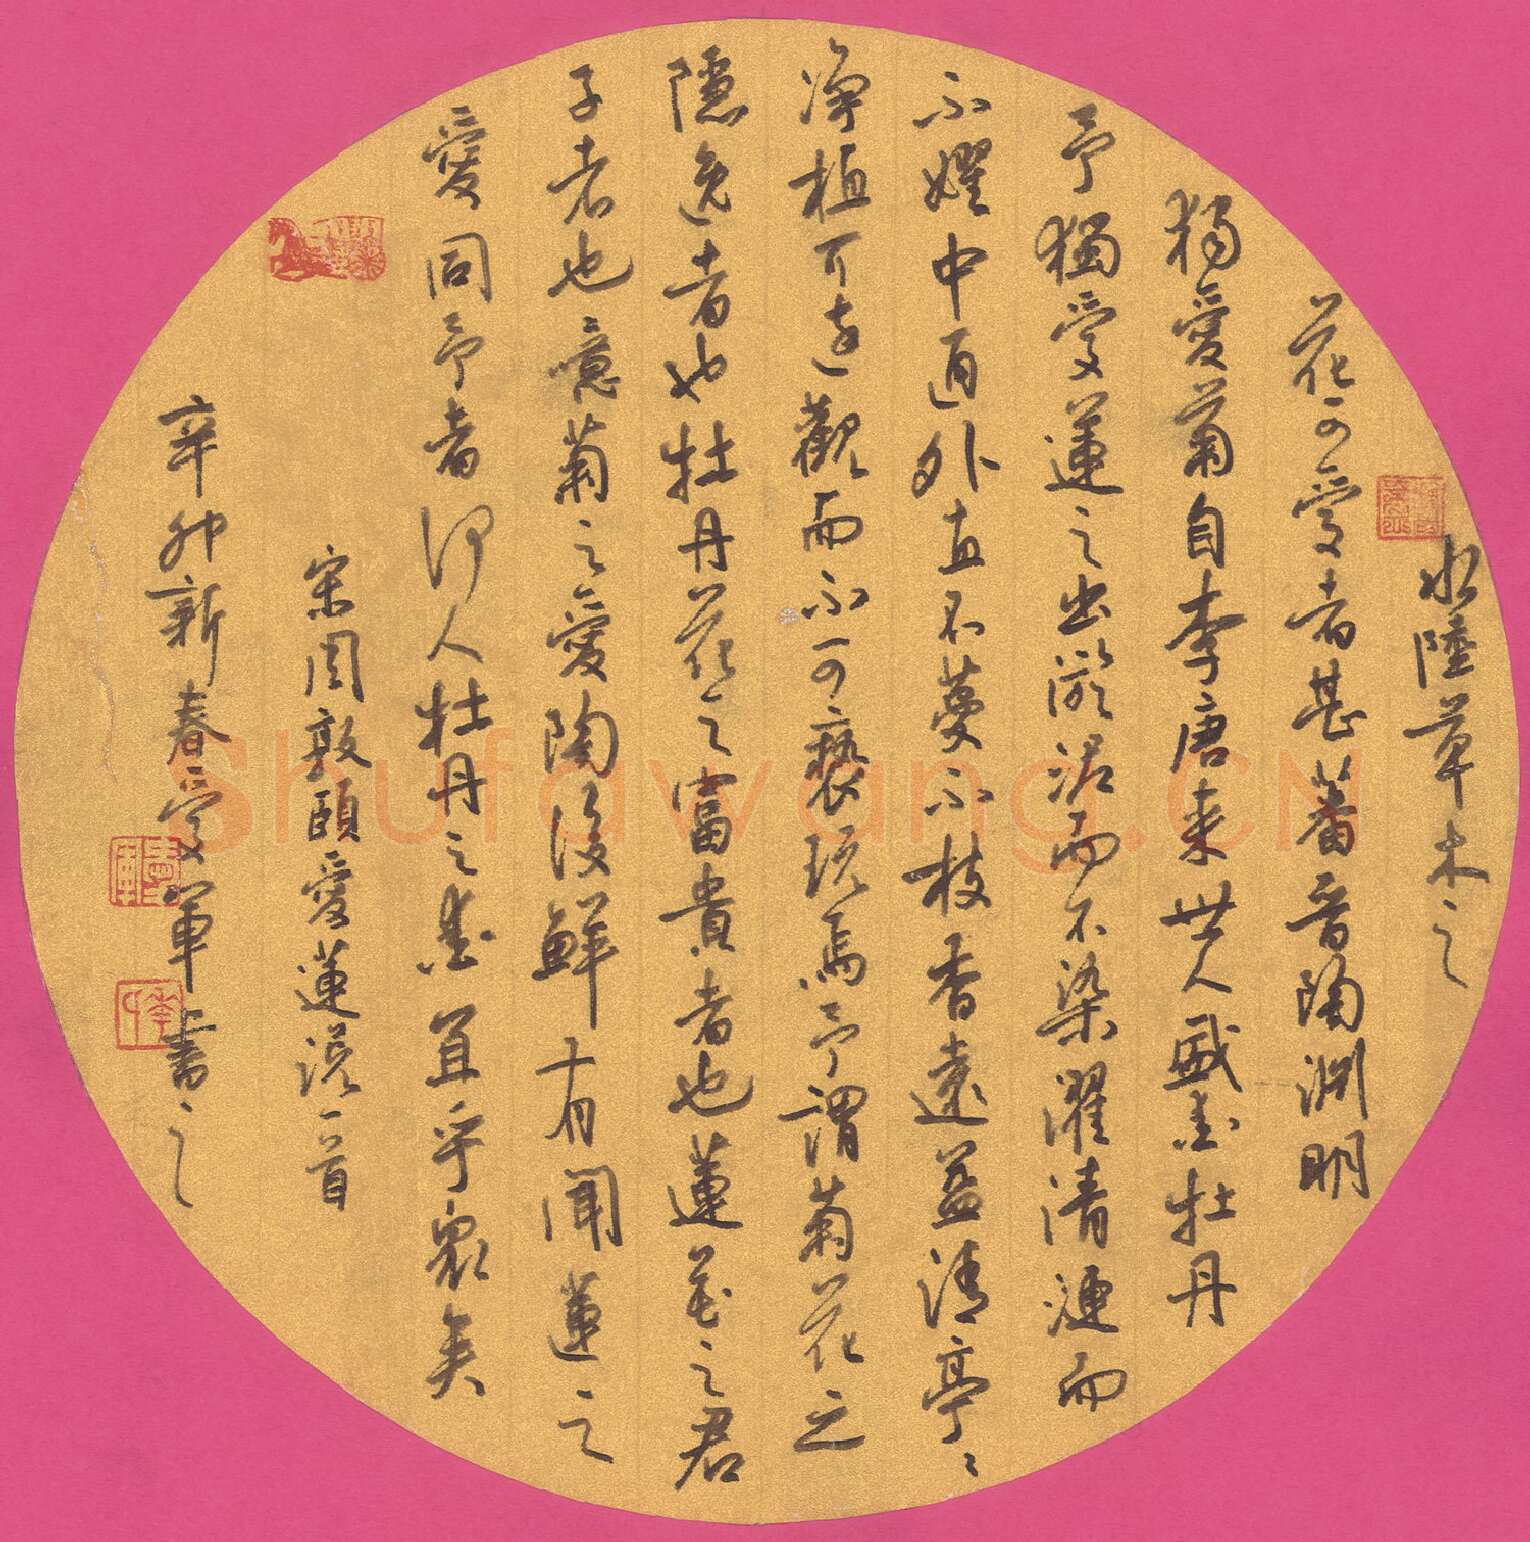 水陸草木之
花可愛者甚蕃晉陶淵明
獨愛菊自李唐来世人盛愛牡丹
予獨愛蓮之出淤泥而不染濯清漣而
不嬥中通外直不蔓不枝香遠益清亭〻
净植可遠觀而不可褻玩焉予謂菊花之
隱逸者也牡丹花之富貴者也蓮花之君
子者也噫菊之愛陶後鮮有聞蓮之
愛同予者何人牡丹之愛宜乎眾矣
宋周敦頤愛蓮說一首
辛卯新春愛軍書之
Shufawang.CN